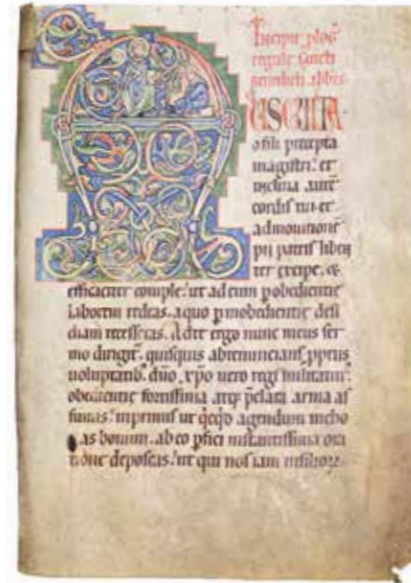 Incipit plog'
regule sancti
benedicti abbis
AUSCULTA
o fili precepta
magistri. et
inclina aurē
cordis tui et
admonitionē
pii patris liben
ter excipe. &
efficaciter comple. ut ad eum p obedientie
laborem redeas. a quo p inobedientie desi
diam recesseras. Ad te ergo nunc meus ser
mo dirigit'. quisquis abrenuncians ppriis
voluptatib'. dño xp̄o vero regi militatur'
obedientie fortissima atq; pclara arma as
sumis. inprimis ut qcqd agendum incho
as bonum. ab eo pfici instantissima ora
tione deposcas. ut qui nos iam in filior